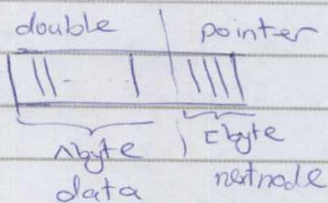 double pointer
۸byte ۴byte
data nextnode